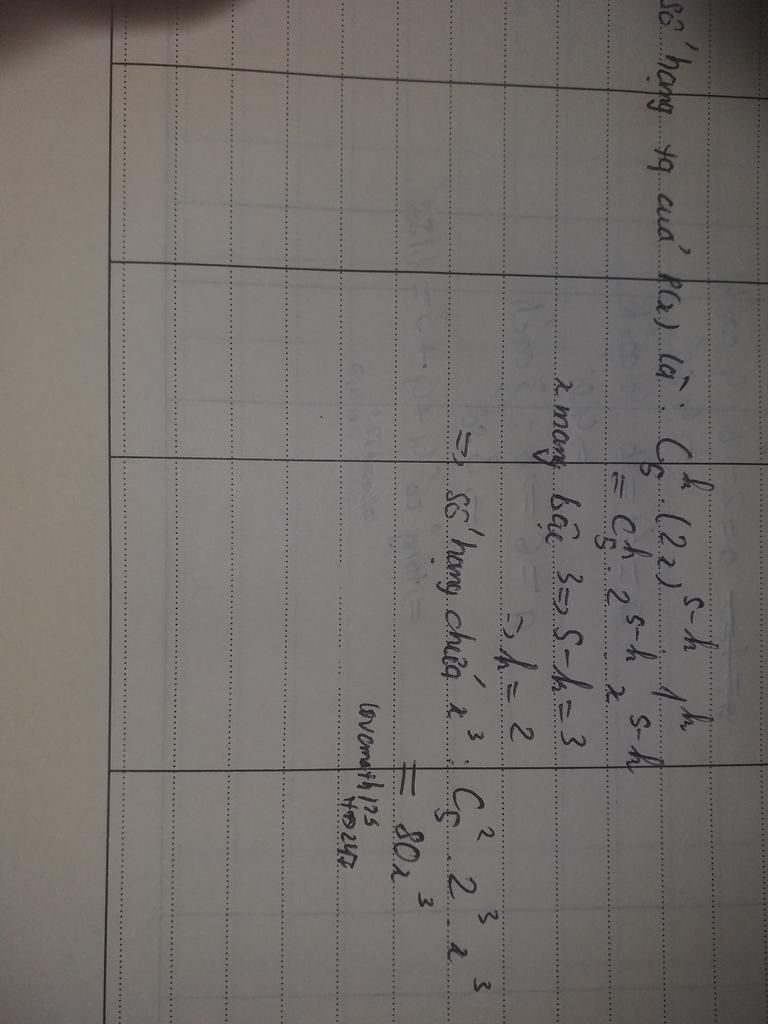 số hạng tq của P(x) là: C₅ᵏ.(2x)⁵⁻ᵏ.1ᵏ
= C₅ᵏ.2⁵⁻ᵏ.x⁵⁻ᵏ
x mang bậc 3 => 5-k=3
=> k=2
=> số hạng chứa x³: C₅².2³.x³
= 80x³
lovemath123